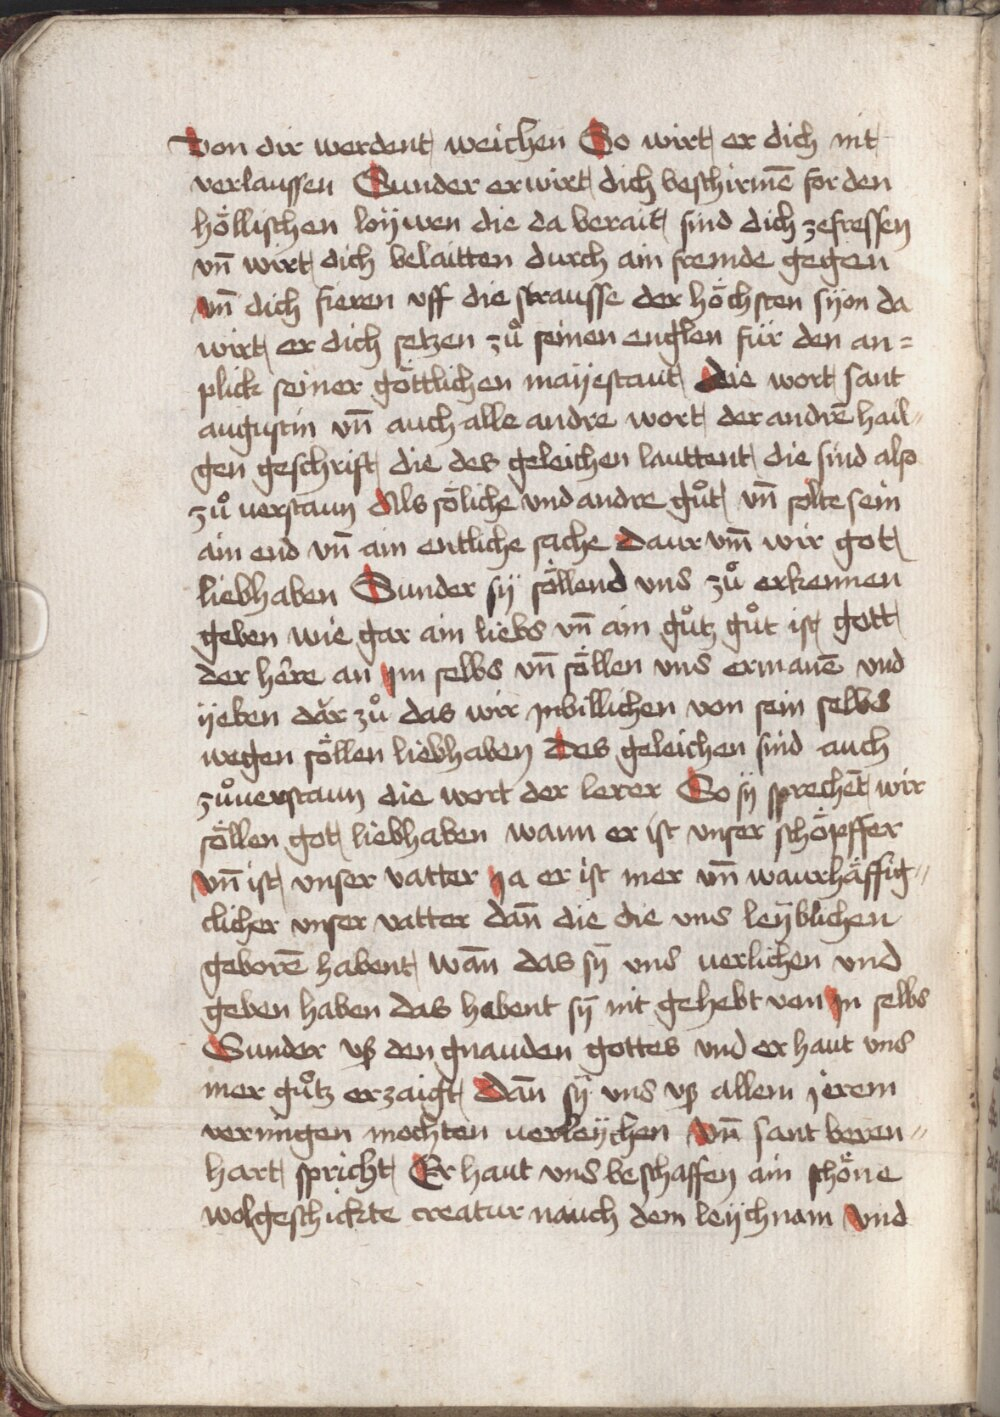 Von dir werdent weichen So wirt er dich nit
verlaussen Sunder er wirt dich beschirmē for den
höllischen loÿwen die da berait sind dich zefressen
vn̄ wirt dich belaitten durch ain fremde gegen
vn̄ dich fieren vff die strausse der höchsten sÿon da
wirt er dich setzen zů seinen englen für den an=
plick seiner göttlichen maÿestaut die wort sant
augustin vn̄ auch alle andre wort der andrē hail=
gen geschrift die des geleichen lauttent die sind also
zů uerstaun Als söliche vnd andre gůt vn̄ solte sein
ain end vn̄ ain entliche sache Daur vm̄ wir got
liebhaben Sunder sÿ söllend vns zů erkennen
geben wie gar ain liebs vn̄ ain gůtz gůt ist gott
der here an jm selbs vn̄ söllen vns ermanē vnd
ÿeben dar zů das wir jnbillichen von sein selbs
wegen söllen liebhaben Des geleichen sind auch
zůuerstaun die wort der lerer So sÿ sprechēt wir
söllen got liebhaben wann er ist vnser schöpffer
vn̄ ist vnser vatter ja er ist mer vn̄ waurhäffig=
clicher vnser vatter dan̄ die die vns leÿblichen
geborē habent wan̄ das sÿ vns uerlichen vnd
geben haben das habent sÿ nit gehebt von jn selbs
Sunder vß den gnauden gottes vnd er haut vns
mer gůtz erzaigt Dan̄ sÿ vns vß allem jerem
vermigen mochten uerleÿchen vn̄ sant beren=
hart spricht Er haut vns beschaffen ain schöne
wolgeschickte creatur nauch dem leÿchnam vnd